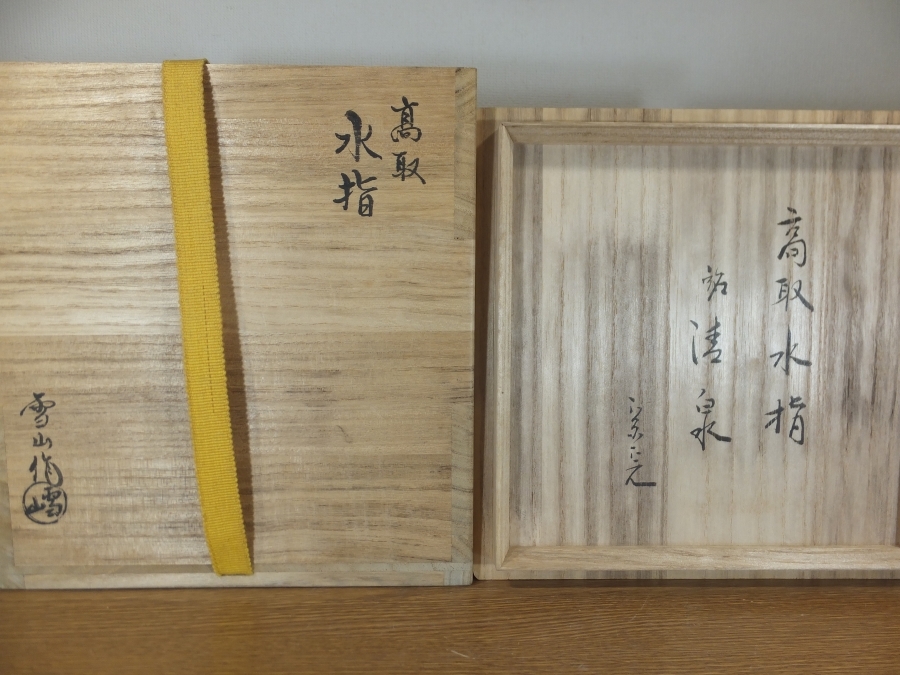 髙取
水指
雪山作
高取水指
銘 清泉